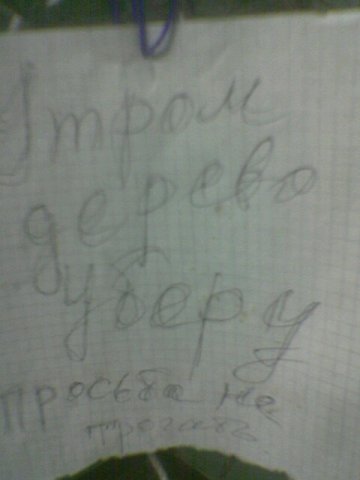 Утром
дерево
уберу
просьба не
трогать